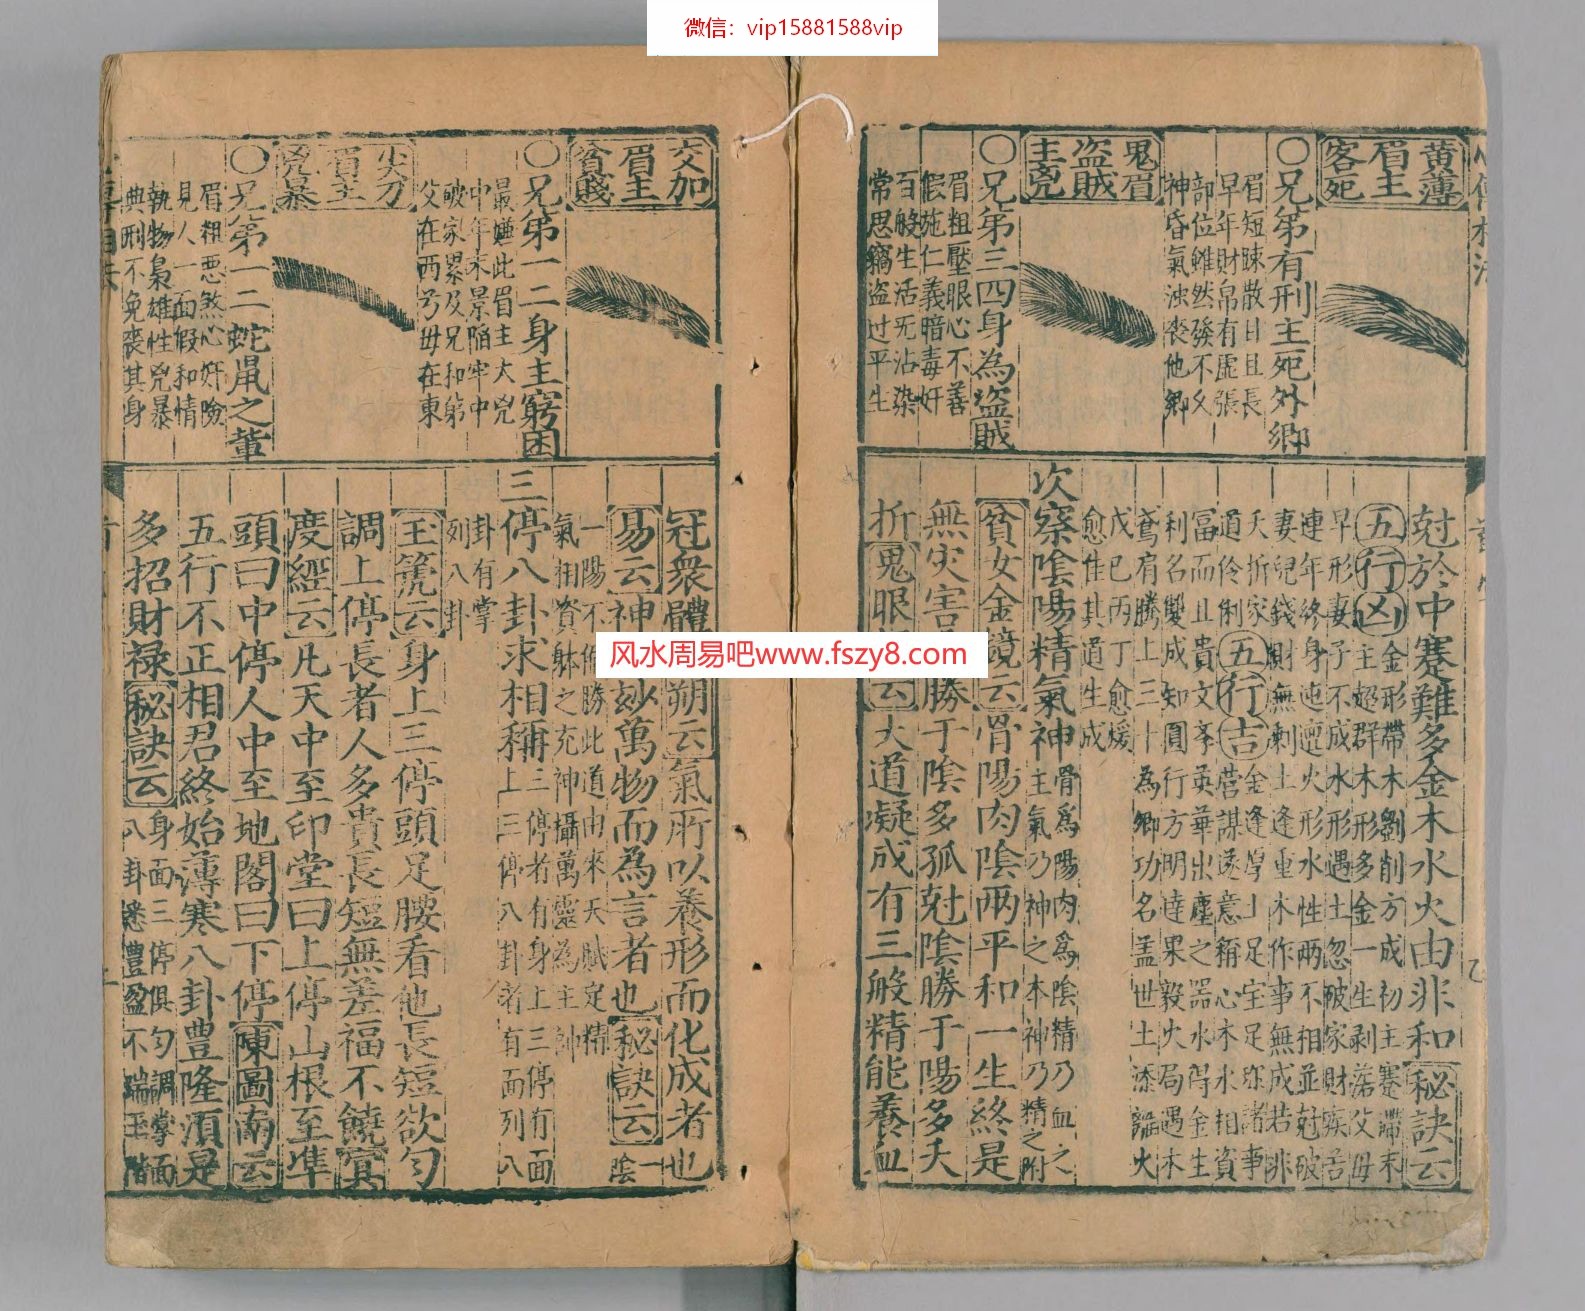 微信：vip15881588vip
黄薄
眉主
客死
〇兄弟有刑主死外鄉
眉短踈散目且長
早年財帛有虛張
部位雖然發不久
神昏氣濁丧他鄉
鬼眉
盗賊
主兇
〇兄弟三四身為盗賊
眉粗壓眼心不善
假施仁義暗毒奸
百般生活旡沾染
常思竊盗过平生
尅於中蹇難多金木水火由非和秘訣云
五行凶金形帶木劉削方成初主蹇滯末
主超群木形多金一生剥落父母
早形妻子不成水形遇土忽破家財疾苦
連年終身迍邅火形水性兩不相並尅破
妻兒錢財無剩土逢重木作事無成若非
夭折家道伶俐五行吉金逢厚土足宝足珎諸事
營謀遂意稱心木水相資
冨而且貴文孝英華出塵之器水得金生
利名雙成知圓行方明達果毅火局遇木
鳶肩騰上三十為卿功名盖世土添離火
戊巳丙丁愈煖
愈佳其道生成
次察陰陽精氣神骨爲陽肉爲陰精乃血之
主氣乃神之本神乃精之附
貧女金鏡云骨陽肉陰兩平和一生終是
無灾害
勝于陰多孤尅陰勝于陽多夭
折鬼眼
云大道凝成有三般精能養血
交加
眉主
貧賤
〇兄弟一二身主窮困
最嫌此眉主大兇
中年末景陷牢中
破家累及兄和弟
父在西兮毋在東
尖刀
眉主
兇暴
〇兄弟一二蛇鼠之輩
眉粗惡煞心奸險
見人一面假和情
執物梟雄性兇暴
典刑不免喪其身
冠衆體
朔云氣所以養形而化成者也
易云神
妙萬物而為言者也秘訣云一陰
一陽不偏勝此道由來天賦定精
氣相資躰之充神攝萬靈為主帥
三停八卦求相稱三停者有身上三停有面
上三停八卦者有面列八
卦有掌
列八卦
玉筦云身上三停頭足腰看他長短欲匀
調上停長者人多貴長短無差福不饒㝠
度經云凡天中至印堂曰上停山根至凖
頭曰中停人中至地閣曰下停陳圖南云
五行不正相君終始薄寒八卦豊隆湏是
多招財禄秘訣云身面三停俱匀調掌面
八卦悉豊盈不瑞玉階
风水周易吧www.fszy8.com